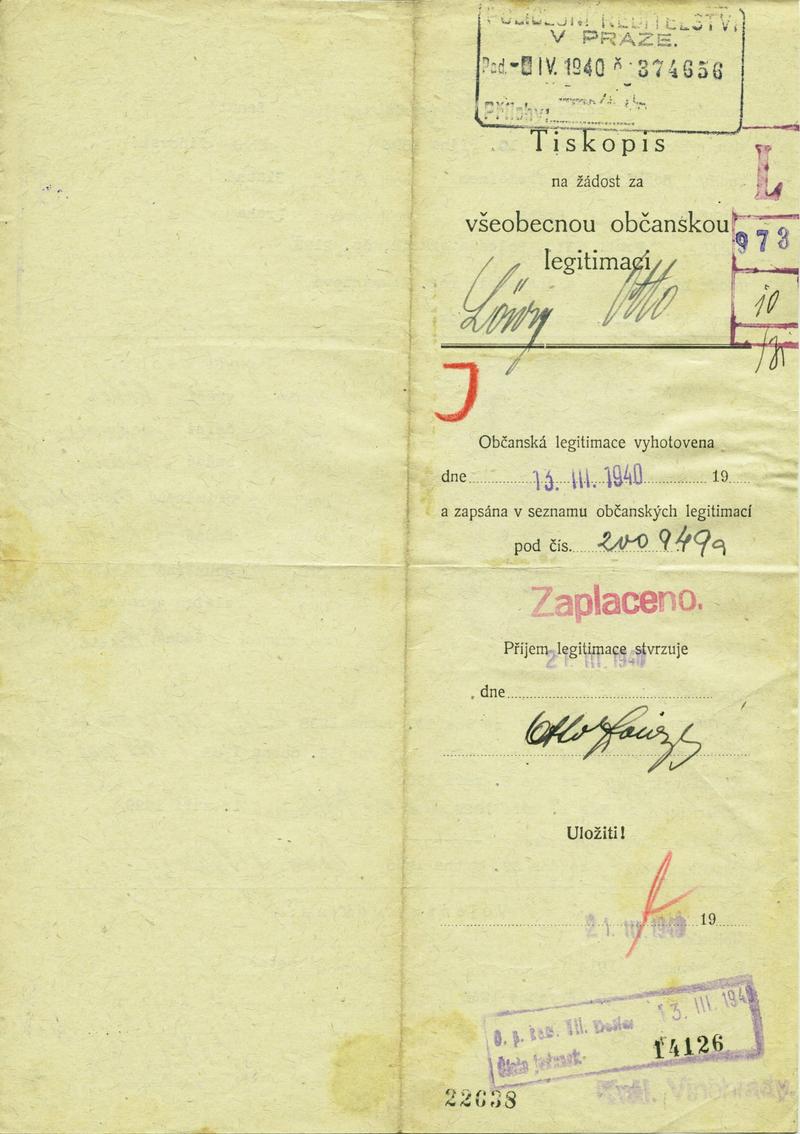 POLICEJNÍ ŘEDITELSTVÍ
V PRAZE.
Pod. - IV. 1940 č. 374656
Přílohy:
Tiskopis
na žádost za
všeobecnou občanskou
legitimaci
L
973
10
Löwy Otto
J
Občanská legitimace vyhotovena
dne 13. III. 1940 19
a zapsána v seznamu občanských legitimací
pod čís. 2009499
Zaplaceno.
Příjem legitimace stvrzuje
21. III. 1940
dne
Otto Löwy
Uložiti!
21. III. 1940 19
13. III. 1940
Číslo jednací
14126
22638
Král. Vinohrady.